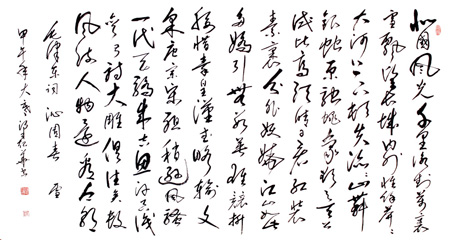 北国风光千里冰封万里
雪飘望长城内外惟余莽莽
大河上下顿失滔滔山舞
银蛇原驰蜡象欲与天公
试比高须晴日看红装
素裹分外妖娆江山如此
多娇引无数英雄竞折
腰惜秦皇汉武略输文
采唐宗宋祖稍逊风骚
一代天骄成吉思汗只识
弯弓射大雕俱往矣数
风流人物还看今朝
毛泽东词 沁园春 雪
甲午年大寒